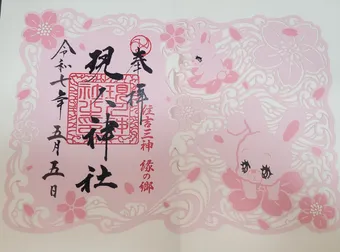 奉拝
住吉三神 縁の郷
現人神社
令和七年 五月五日